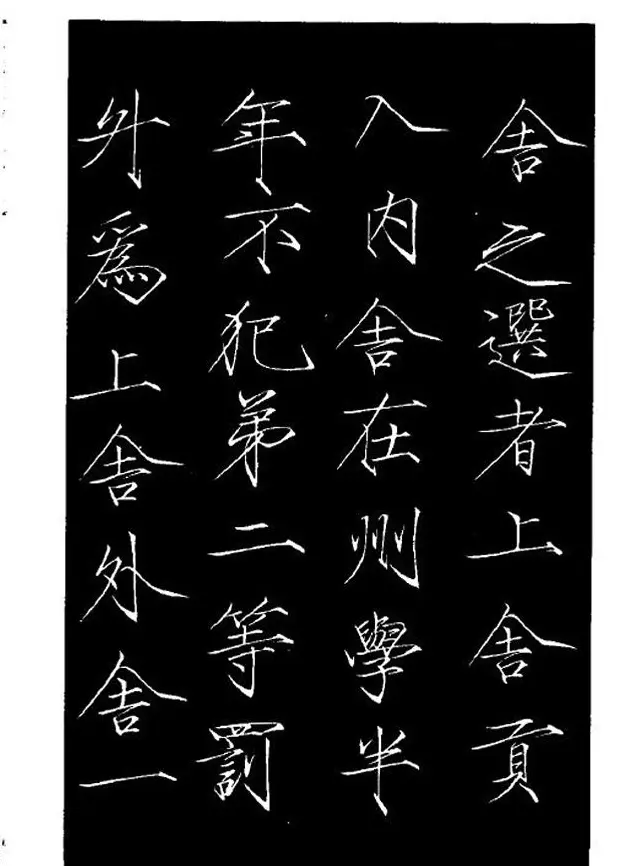 舍之選者上舍貢
入内舍在州學半
年不犯弟二等罰
升為上舍外舍一